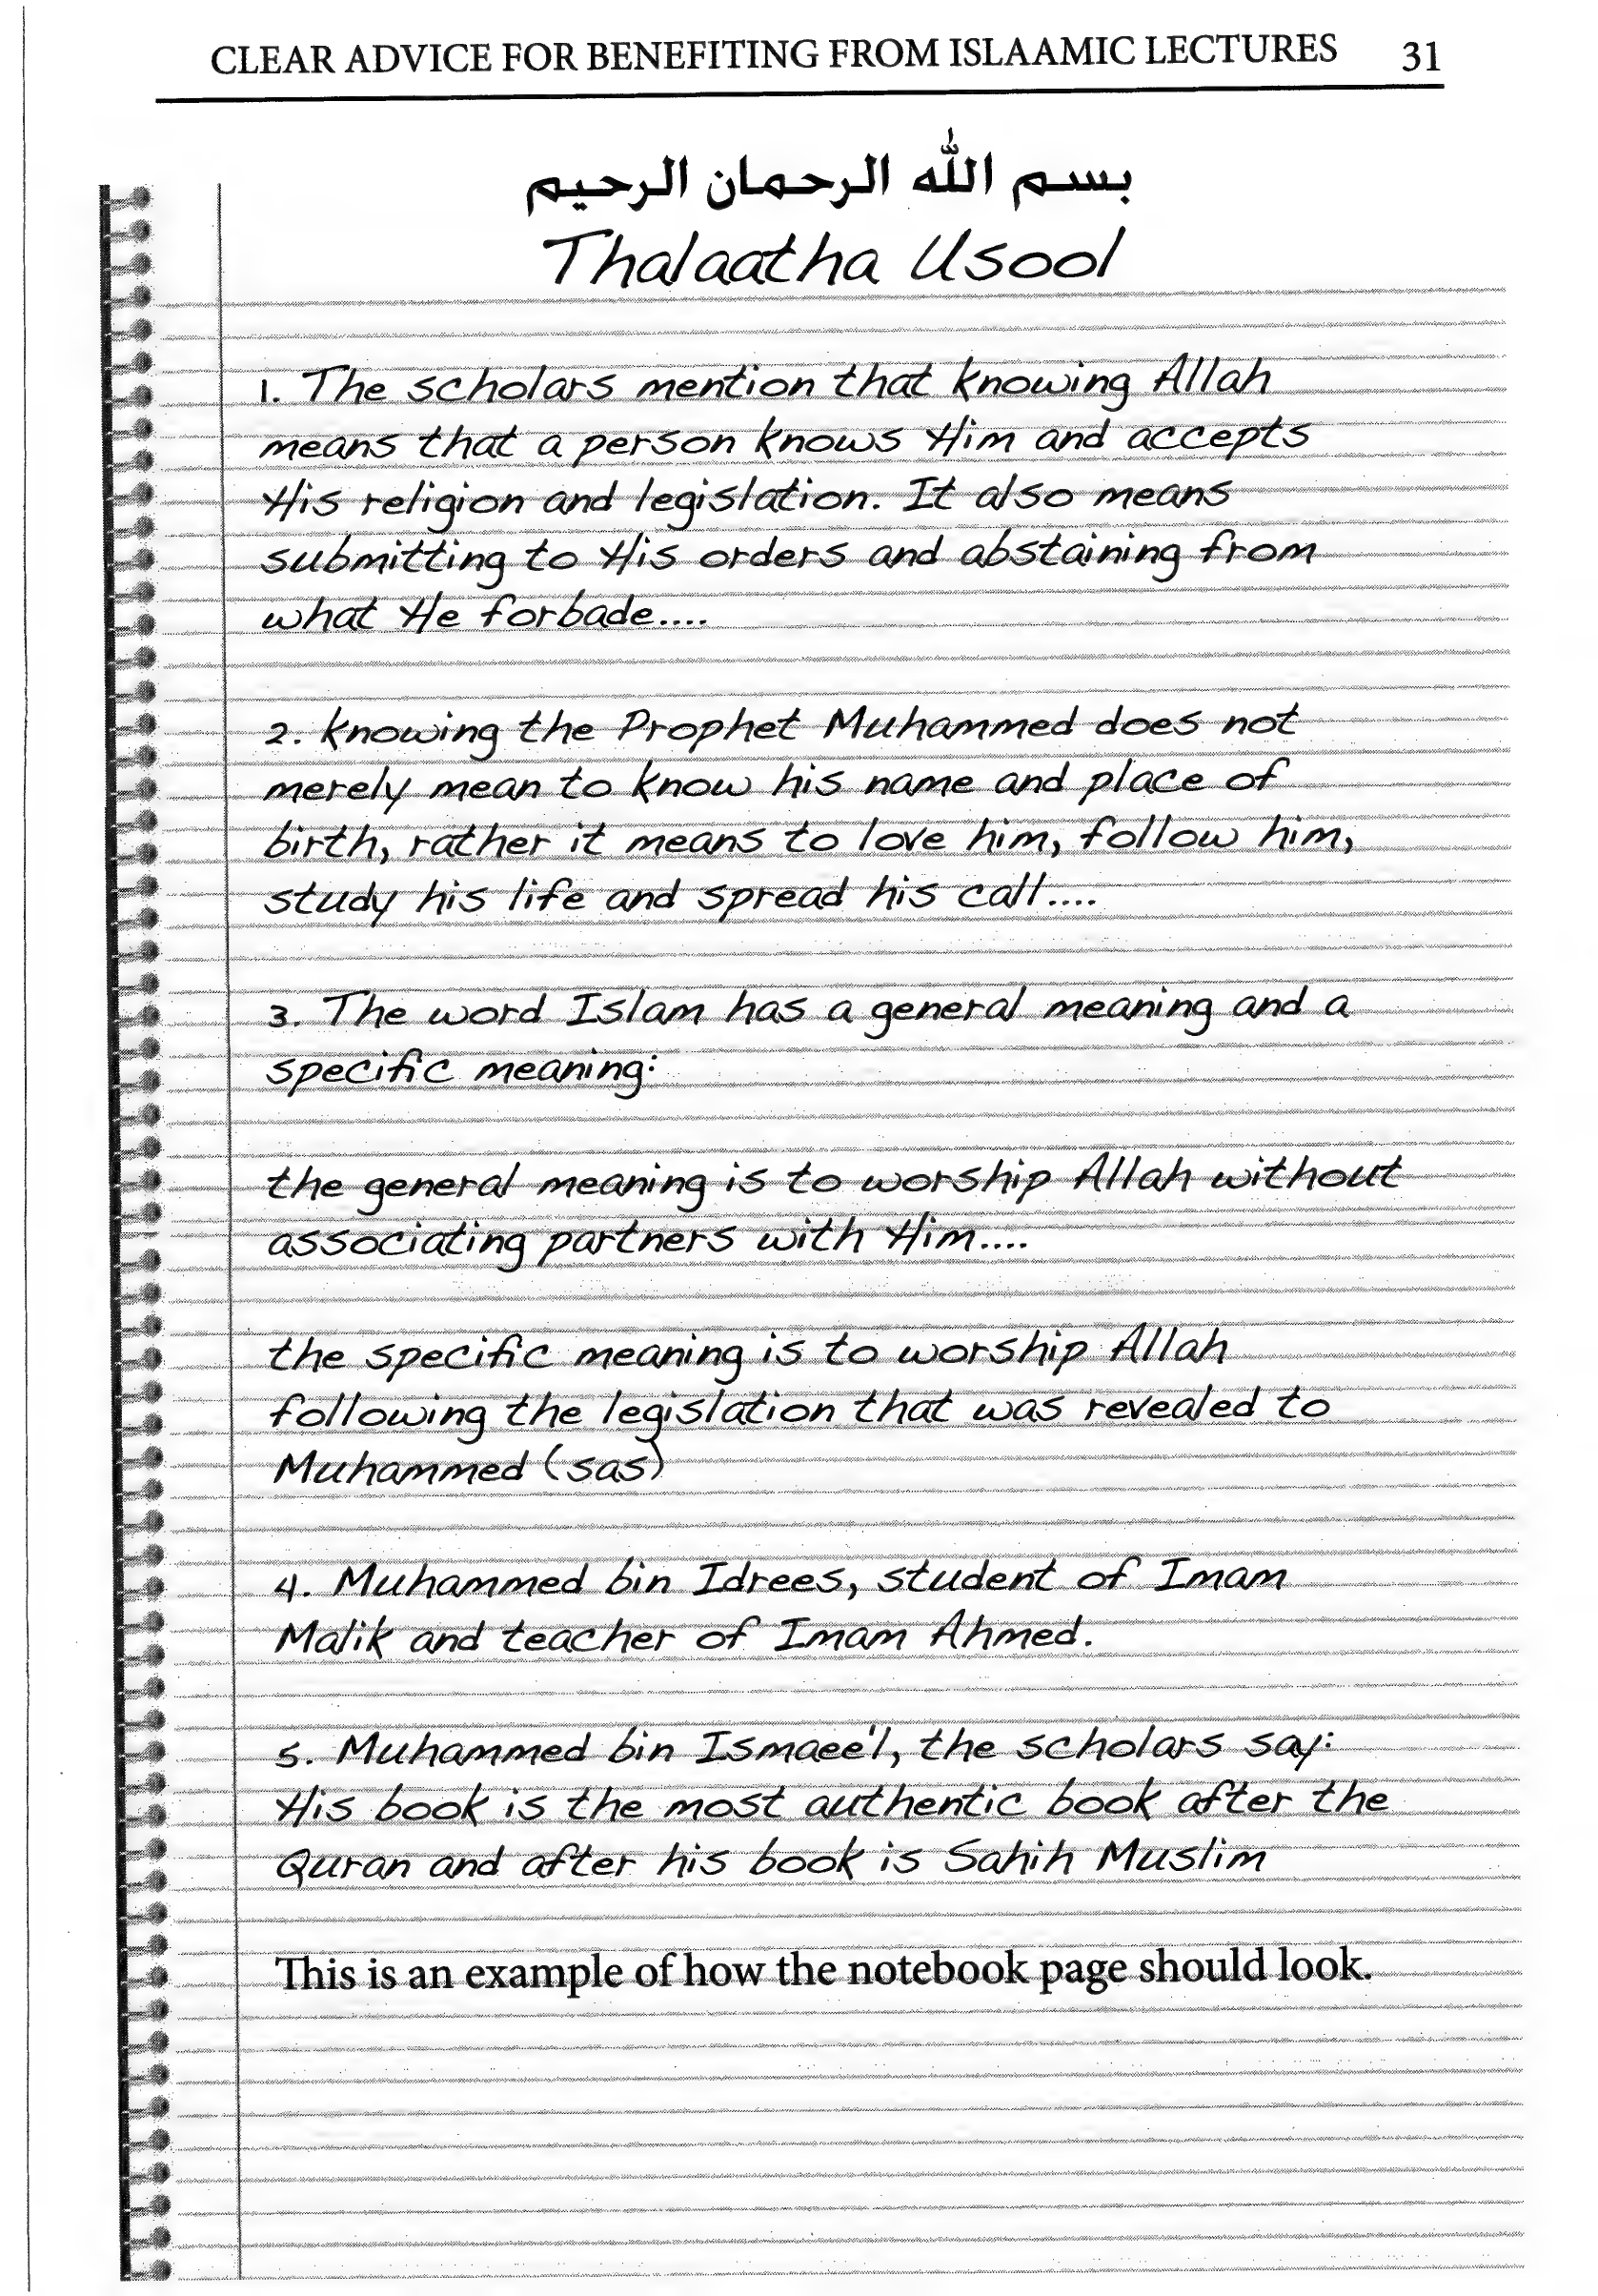 CLEAR ADVICE FOR BENEFITING FROM ISLAAMIC LECTURES 31
بسم الله الرحمان الرحيم
Thalaatha Usool
1. The scholars mention that knowing Allah
means that a person knows Him and accepts
His religion and legislation. It also means
submitting to His orders and abstaining from
what He forbade....
2. Knowing the Prophet Muhammed does not
merely mean to know his name and place of
birth, rather it means to love him, follow him,
study his life and spread his call....
3. The word Islam has a general meaning and a
specific meaning:
the general meaning is to worship Allah without
associating partners with Him....
the specific meaning is to worship Allah
following the legislation that was revealed to
Muhammed (sas)
4. Muhammed bin Idrees, student of Imam
Malik and teacher of Imam Ahmed.
5. Muhammed bin Ismaee'l, the scholars say:
His book is the most authentic book after the
Quran and after his book is Sahih Muslim
This is an example of how the notebook page should look.